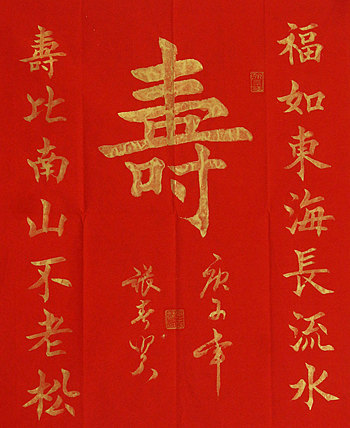 福如東海長流水
壽
庚子年
壽比南山不老松